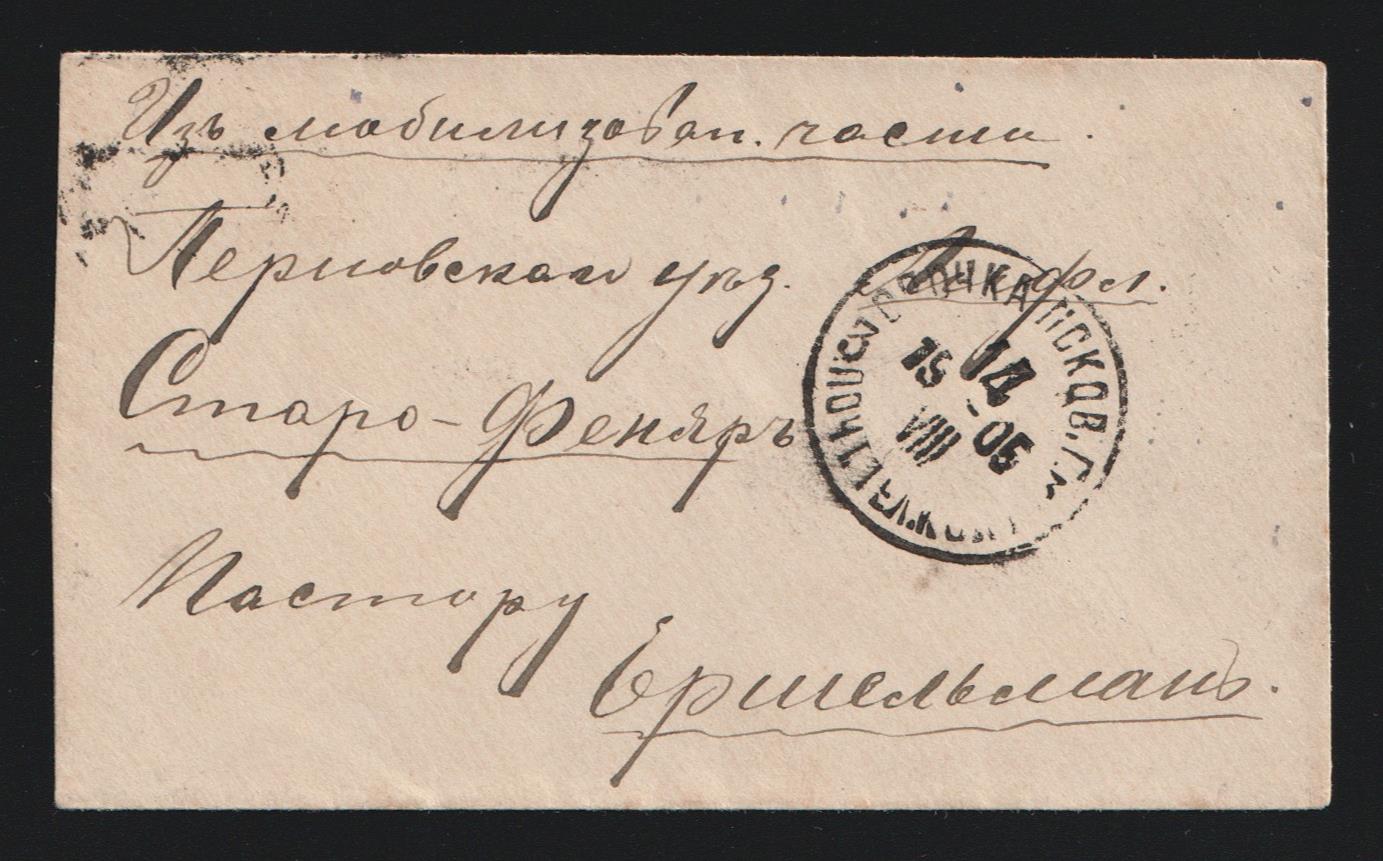 Изъ мобилизован. части
Перновскаго уѣзд. Лифл.
Старо-Феняръ
Пастору
Ершельманъ.
ОПОЧКА ПСКОВ. Г.
14
VIII 05